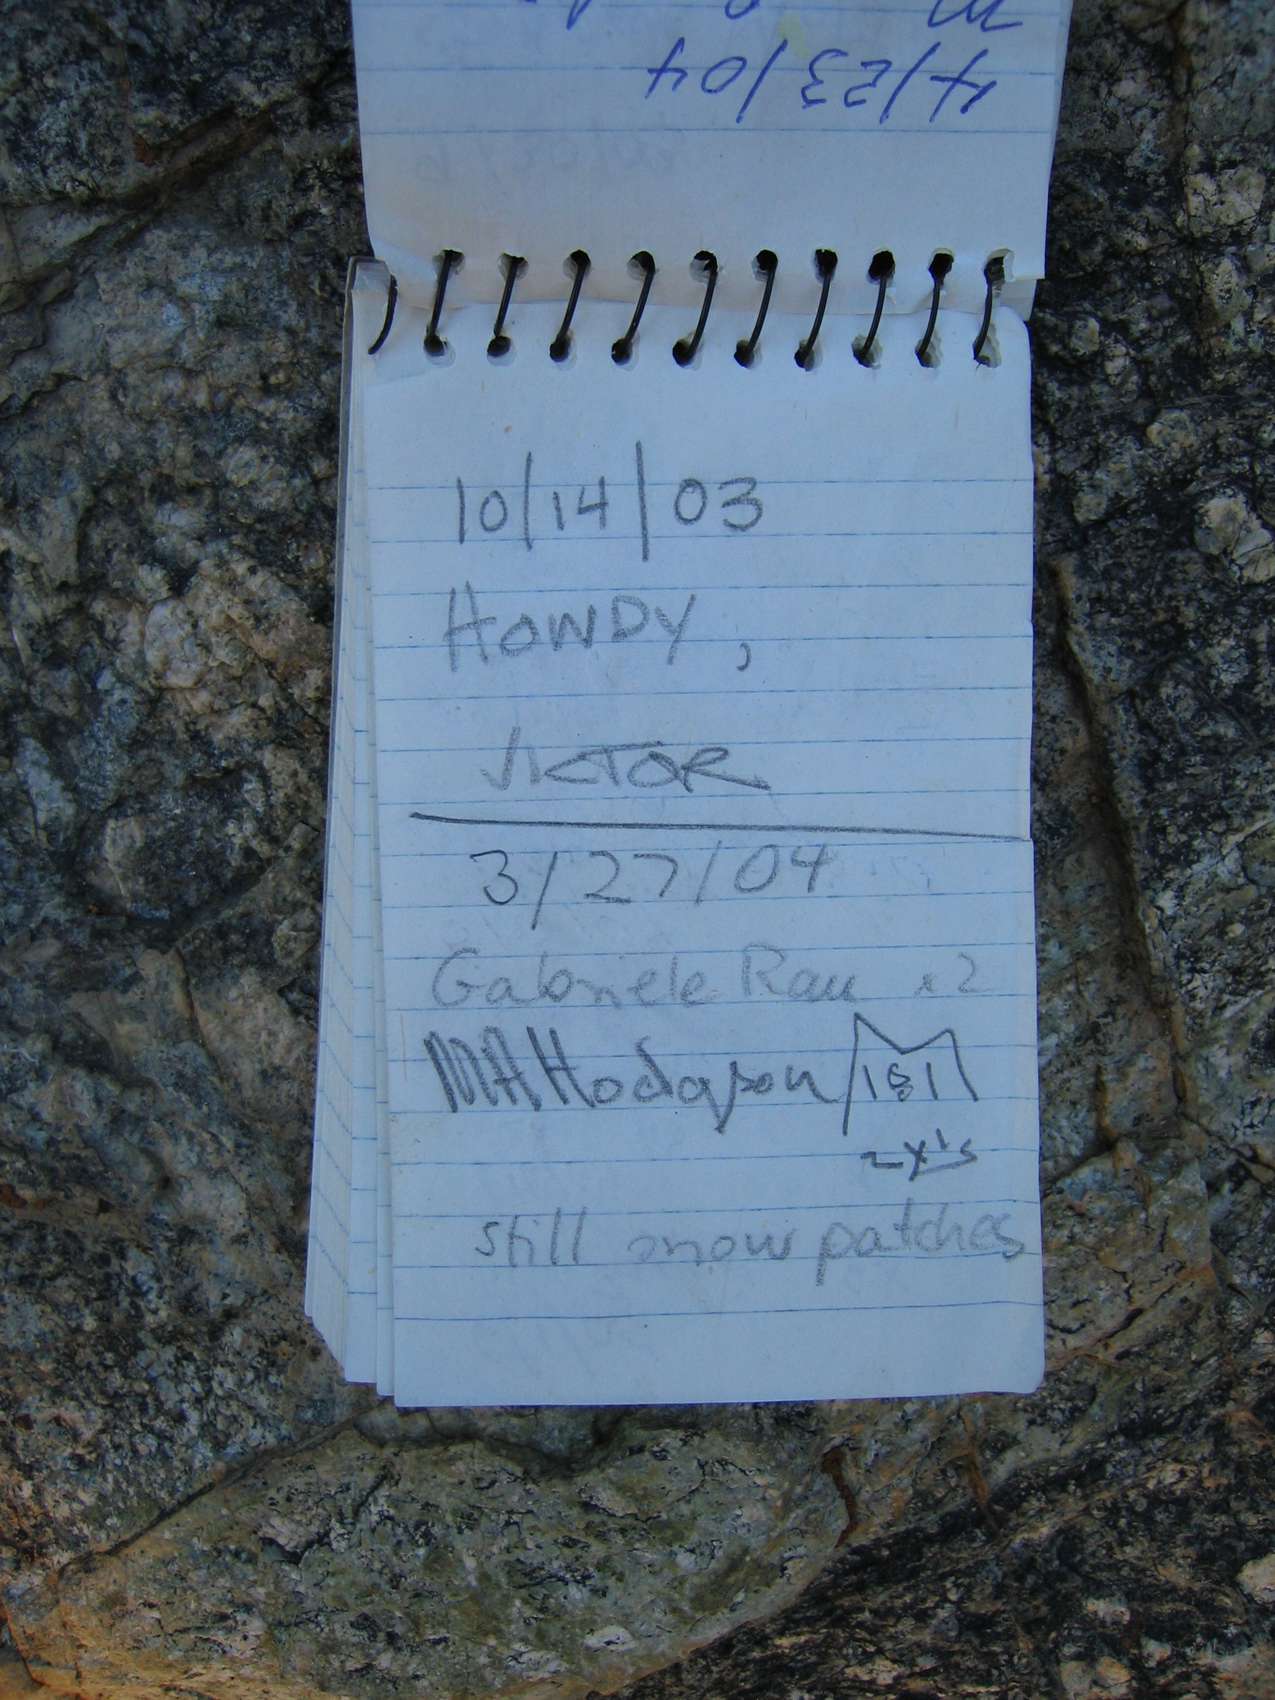 4/23/04
10/14/03
HOWDY,
VIKTOR
3/27/04
Gabriele Rau x2
MA Hodgson
2x's
still snow patches